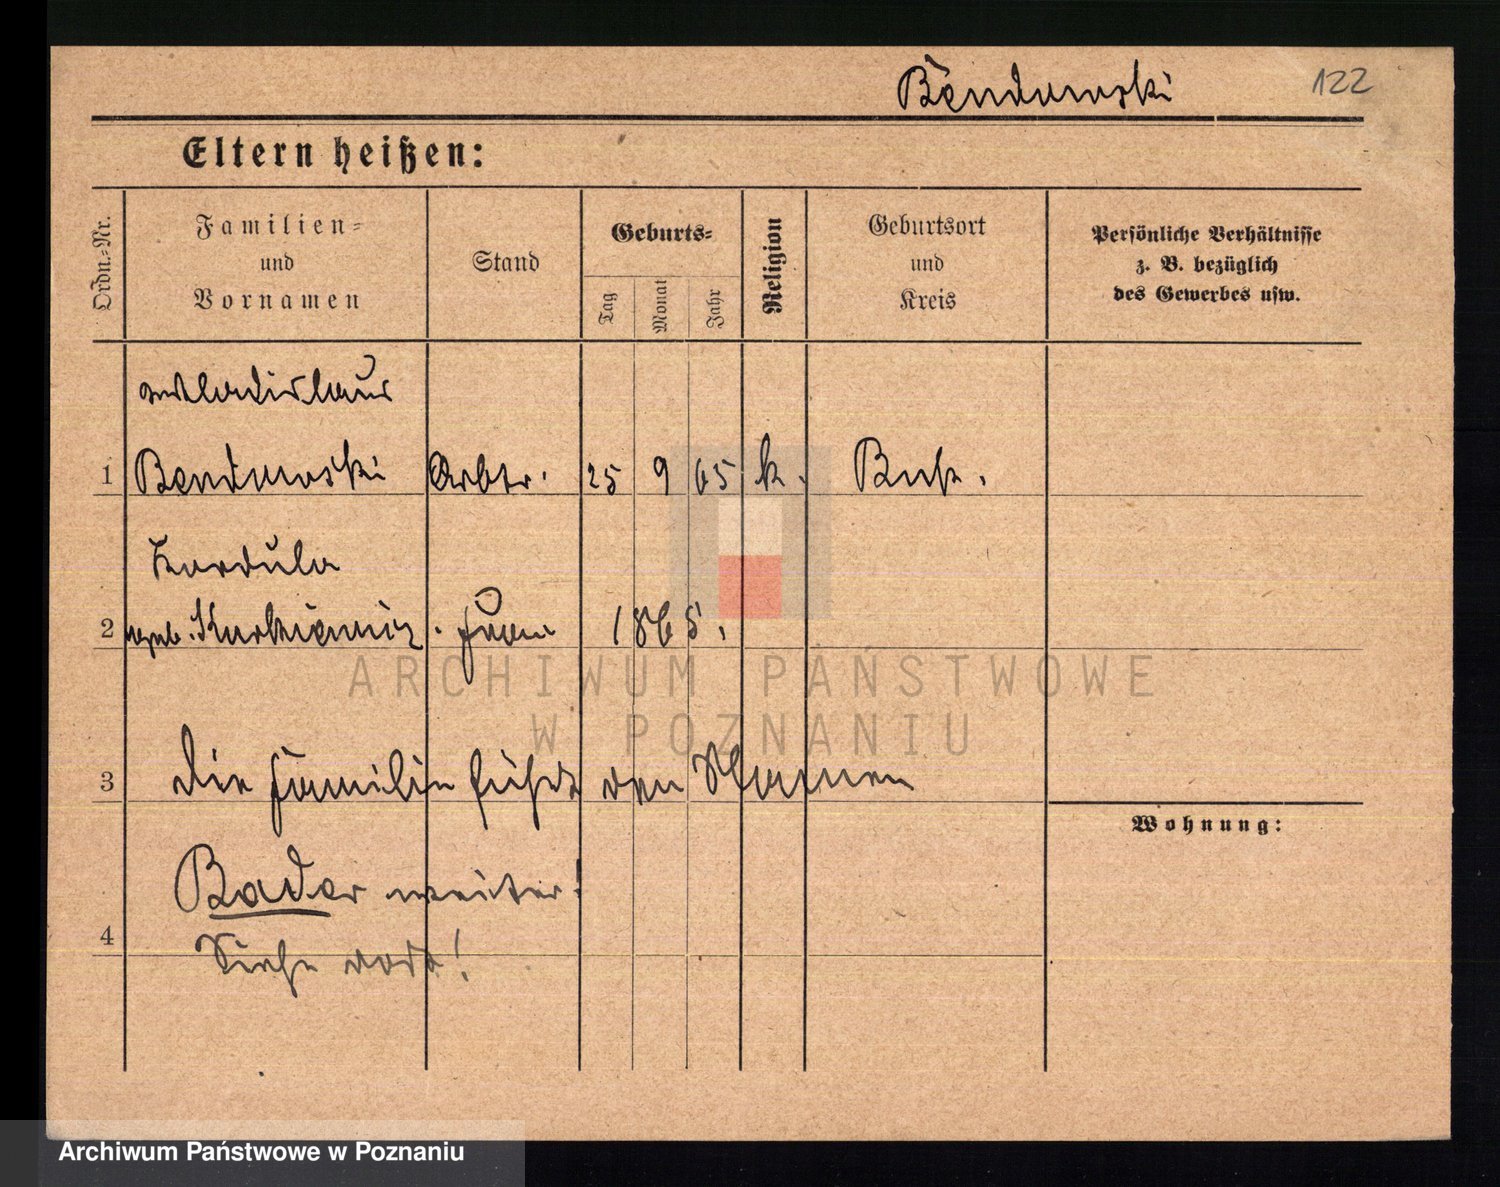 Bendowski 122
Eltern heißen:
Ordn.-Nr.
Familien-
und
Vornamen
Stand
Geburts-
Tag
Monat
Jahr
Religion
Geburtsort
und
Kreis
Persönliche Verhältnisse
z. B. bezüglich
des Gewerbes usw.
Wladislaus
1 Bendowski Arbtr. 25 9 65 k. Buk.
Kordula
2 geb. Frau 1865.
3 Die Familie führt den Namen
Wohnung:
Bader weiter!
4 Siehe dort!
ARCHIWUM PAŃSTWOWE
W POZNANIU
Archiwum Państwowe w Poznaniu